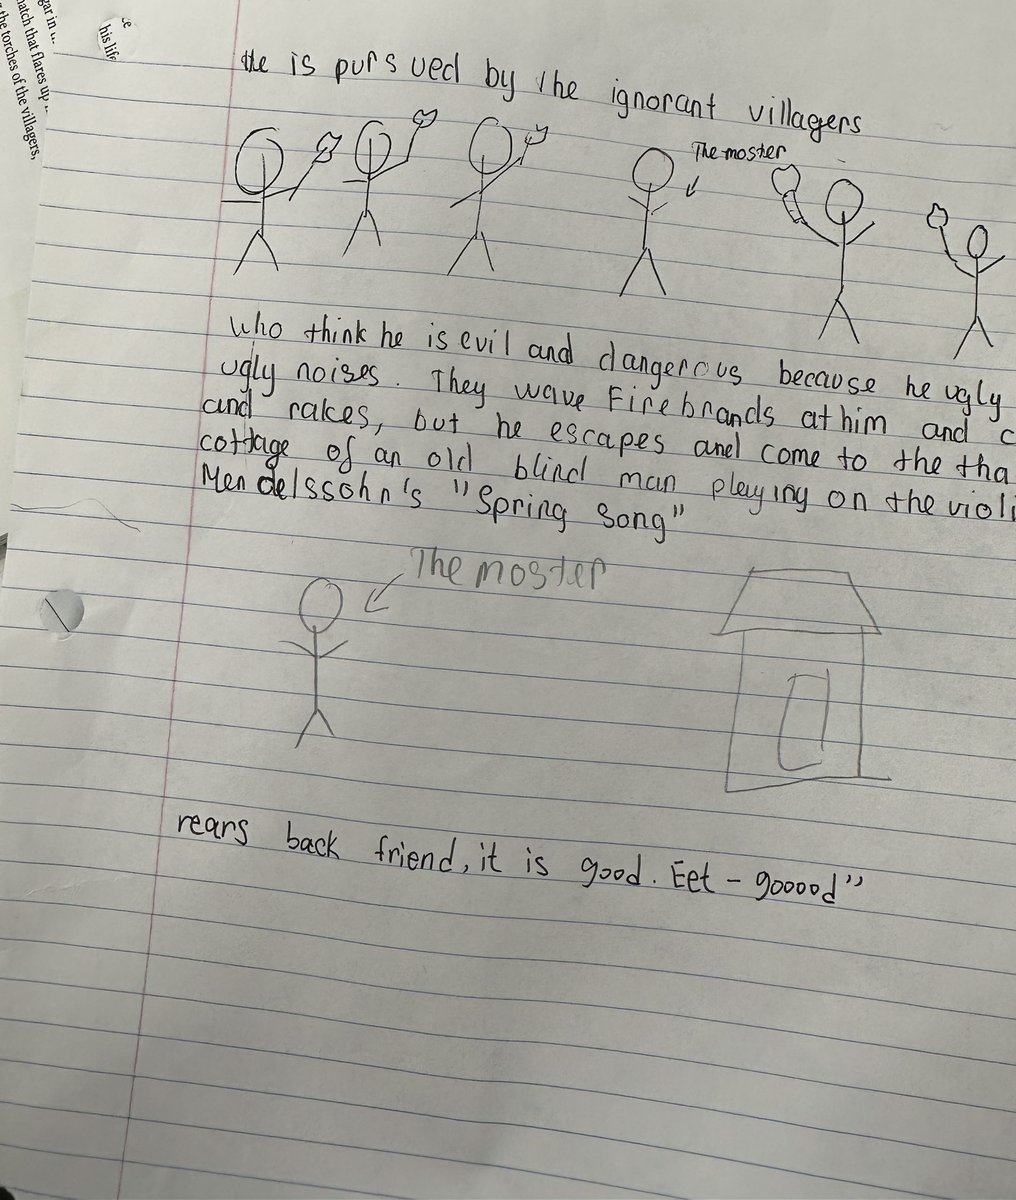 gar in
match that flares up
the torches of the villagers,
his life
He is pursued by the ignorant villagers
The moster
who think he is evil and dangerous because he ugly
ugly noises. They wave Firebrands at him and c
and rakes, but he escapes and come to the tha
cottage of an old blind man pleying on the violi
Mendelssohn's "Spring Song"
The moster
rears back friend, it is good. Eet - gooood"